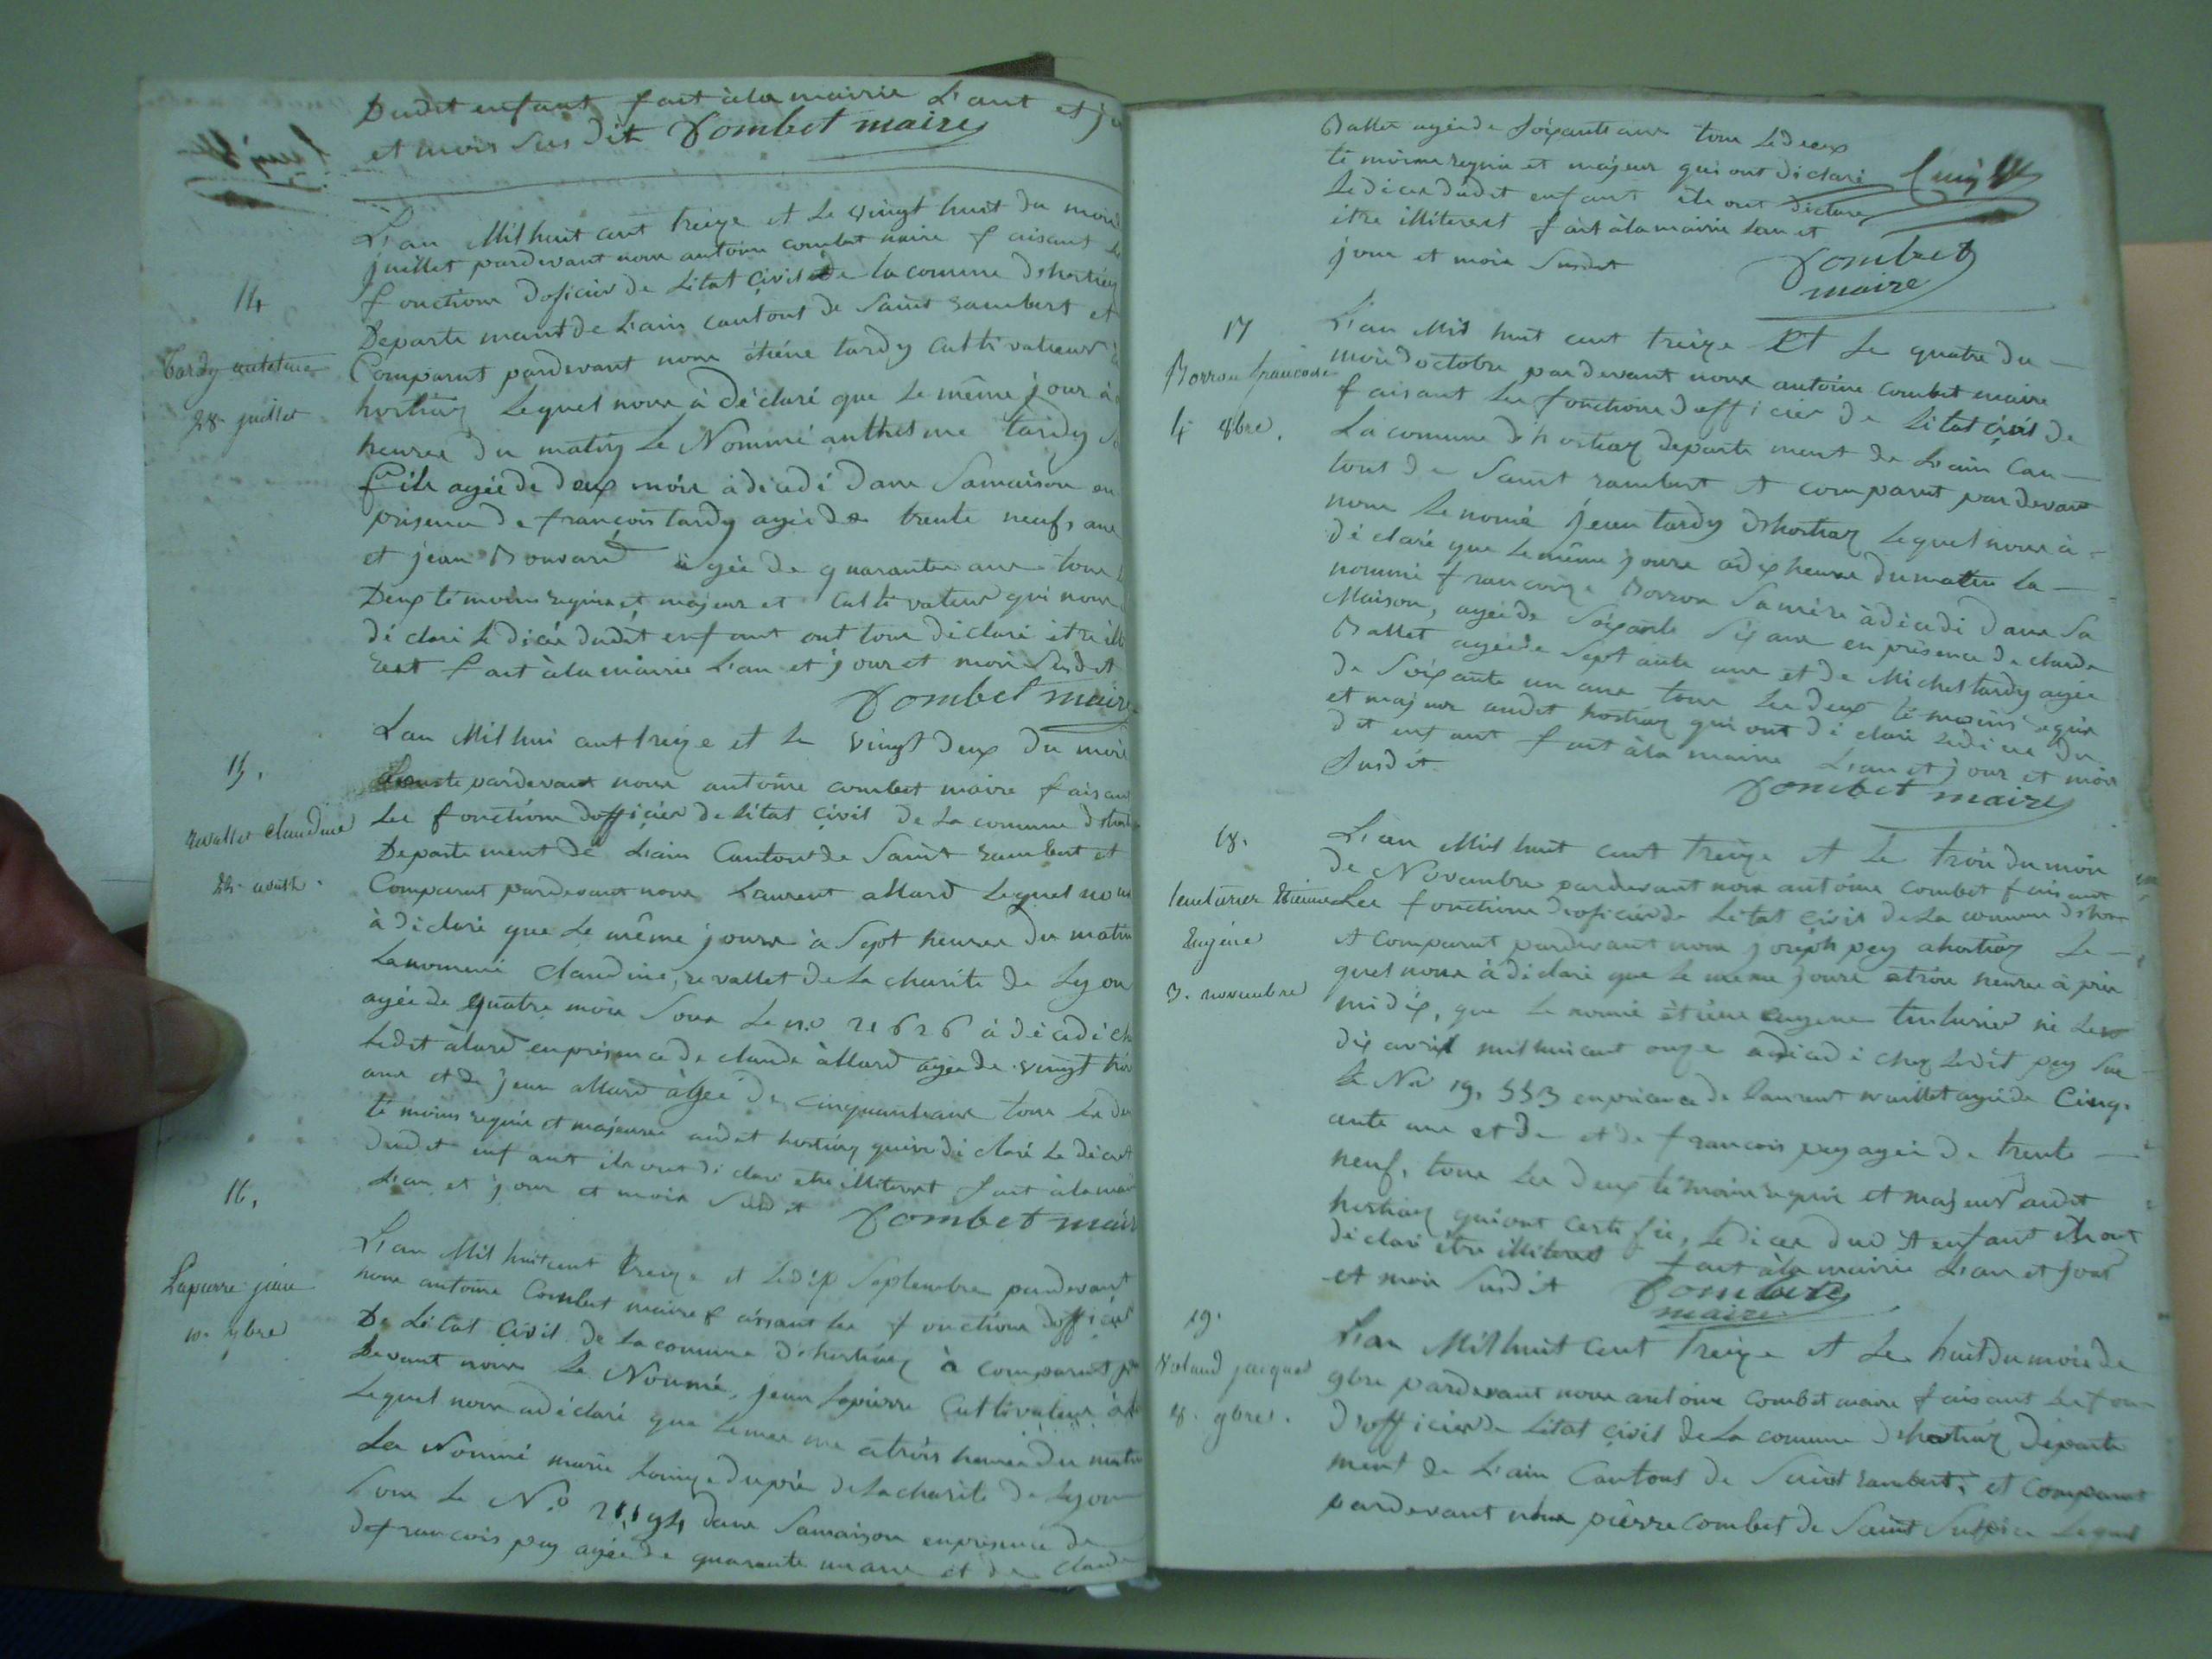 Dudit enfant fait à la mairie L'ant et j
et mois Susdit Combet maire
14
Tardy
28 juillet
L'an Mil huit cent treize et Le vingt huit du mois
juillet pardevant nous antoine combet maire faisant
fonctions doficier de Létat Civil de la comune dhostiaz
Departemant de Lain cantont de Saint rambert et
Comparut pardevant nous étiéne tardy Cultivateur à
hostiaz Lequel nous à Déclaré que Le même jour à
heures du matin Le Nommé anthelme tardy
fils agée de deux mois à dicédé Dans Samaison en
présence de françois tardy agée de trente neufs ans
et jean Bouvard agée de quarante ans tous
Deux témoins requis et majeurs et Cultivateur qui nous
déclaré Le dicés dudit enfant ont tous déclaré être illi
rest fait à la mairie L'an et jour et mois Susdit
Combet maire
15,
revallet Claudine
22. aoust.
L'an Mil hui cent treize et Le vingt deux du mois
pardevant nous antoine combet maire faisant
Les fonctions dofficier de Létat Civil de La comune dhost
Departement de Lain Canton de Saint rambert et
Comparut pardevant nous Laurent allard Lequel nous
à diclaré que Le même jours à Sept heures du matin
La nommé claudine revallet de La charite de Lyon
agée de quatre mois Sous Le n.o 21626 à dicédé ch
Ledit alard en présence de claude allard agée de vingt trois
ans et de jean allard agée de cinquante ans tous Les de
témoins requis et majeures audit hostiaz qui déclaré Le décès
dudit enfant ils ont déclaré etre illiterest fait à la mai
L'an et jour et mois Susdit Combet maire
16,
Lapierre jean
10. 7bre
L'an Mil huit cent treize et Le dix Septembre pardevant
nous antoine Combet maire faisant les fonctions dofficier
De Létat Civil de La comune dhostiaz à comparut par
devant nous Le Nommé, jean Lapierre Cultivateur à
Lequel nous a déclaré que Le meme a trois heures du matin
La Nommé marie Louise dupré de La charité de Lyon
Sous Le N.o dans Samaison en présence de
de francois pey agée de quarante un ans et de claude
Ballet agée de Soixante ans tous Le deux
témoins requis et majeur qui ont diclaré
Le dicés dudit enfant ils ont diclaré
être illiterest fait à la mairie L'an et
jour et mois Susdit Combet
maire
17
Borron francoise
4 8bre.
L'an Mil huit cent treize Et Le quatre du
mois doctobre pardevant nous antoine combet maire
faisant Les fonctions dofficier de Létat Civil de
La comune dhostiaz departement de Lain Can
tont de Saint rambert et comparut pardevant
nous Le nomé jean tardy dhostiaz Lequel nous à
déclaré que Le même jours a dix heures du matin La
nommé françoise Borron Sa mère à dicédé dans Sa
Maison, agée de Soixante Six ans en présence de claude
Ballet agée de Septante ans et de Michel tardy agée
de Soixante un ans tous Les deux témoins requis
et majeur audit hostiaz qui ont déclaré Le dicés du
dit enfant fait à la mairie L'an et jour et mois
Susdit.
Combet maire
18.
teinturier Etienne
Eugéne
3. novembre
L'an Mil huit cent treize et Le trois du mois
de Novembre pardevant nous antoine combet faisant
Les fonctions doficier de Létat Civil de La comune dhos
et comparut pardevant nous joseph pey a hostiaz Le
quel nous à diclaré que Le meme jours a trois heures à près
midi, que Le nomé étiéne eugene né Le
dix avril mil huit cent onze a dicédé chez Ledit pey Sous
Le No 19,553 en présence de Laurent agée de Cinq.
ante ans et de et de francois pey agée de trente
neuf, tous Les deux témoins requis et majeur audit
hostiaz qui ont certifié, Le dicés dudit enfant ils ont
diclaré être illiterest fait à la mairie L'an et jour
et mois Susdit Combet
maire
19.
jacques
8. 9bre.
L'an Mil huit cent treize et Le huit du mois de
9bre pardevant nous antoine combet maire faisant Les fon
dofficier de Létat Civil de La comune dhostiaz departe
ment de Lain Canton de Saint rambert, et comparut
pardevant nous pierre combet de Saint Sulpice Lequel